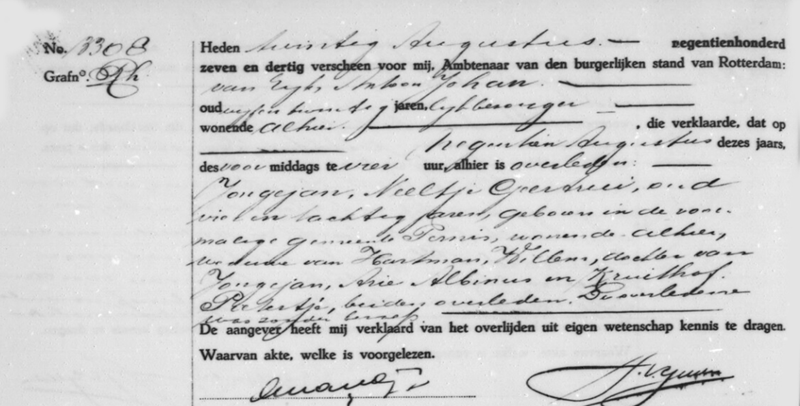 No. 3308
Heden twintig Augustus. negentienhonderd
Grafno. Rh.
zeven en dertig verscheen voor mij, Ambtenaar van den burgerlijken stand van Rotterdam:
van Eyk, Anton Johan.
oud vijf en twintig jaren, lijkbezorger
wonende alhier. , die verklaarde, dat op
negentien Augustus dezes jaars,
des voor middags te vier uur, alhier is overleden:
Jongejan, Neeltje Geertrui, oud
vier en tachtig jaren, geboren in de voor-
malige gemeente Pernis, wonende alhier,
weduwe van Hartman, Willem, dochter van
Jongejan, Arie Albinus en Kruithof,
Pietertje, beiden overleden. De overledene
was zonder beroep.
De aangever heeft mij verklaard van het overlijden uit eigen wetenschap kennis te dragen.
Waarvan akte, welke is voorgelezen.